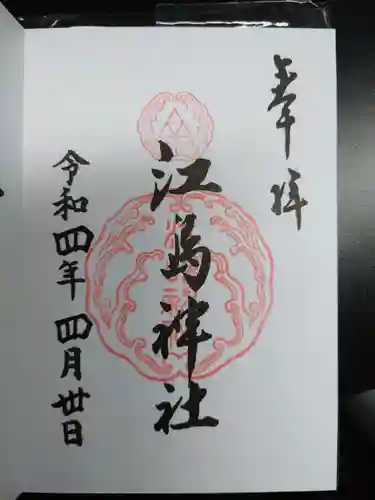 奉拝
江島神社
令和四年四月丗日